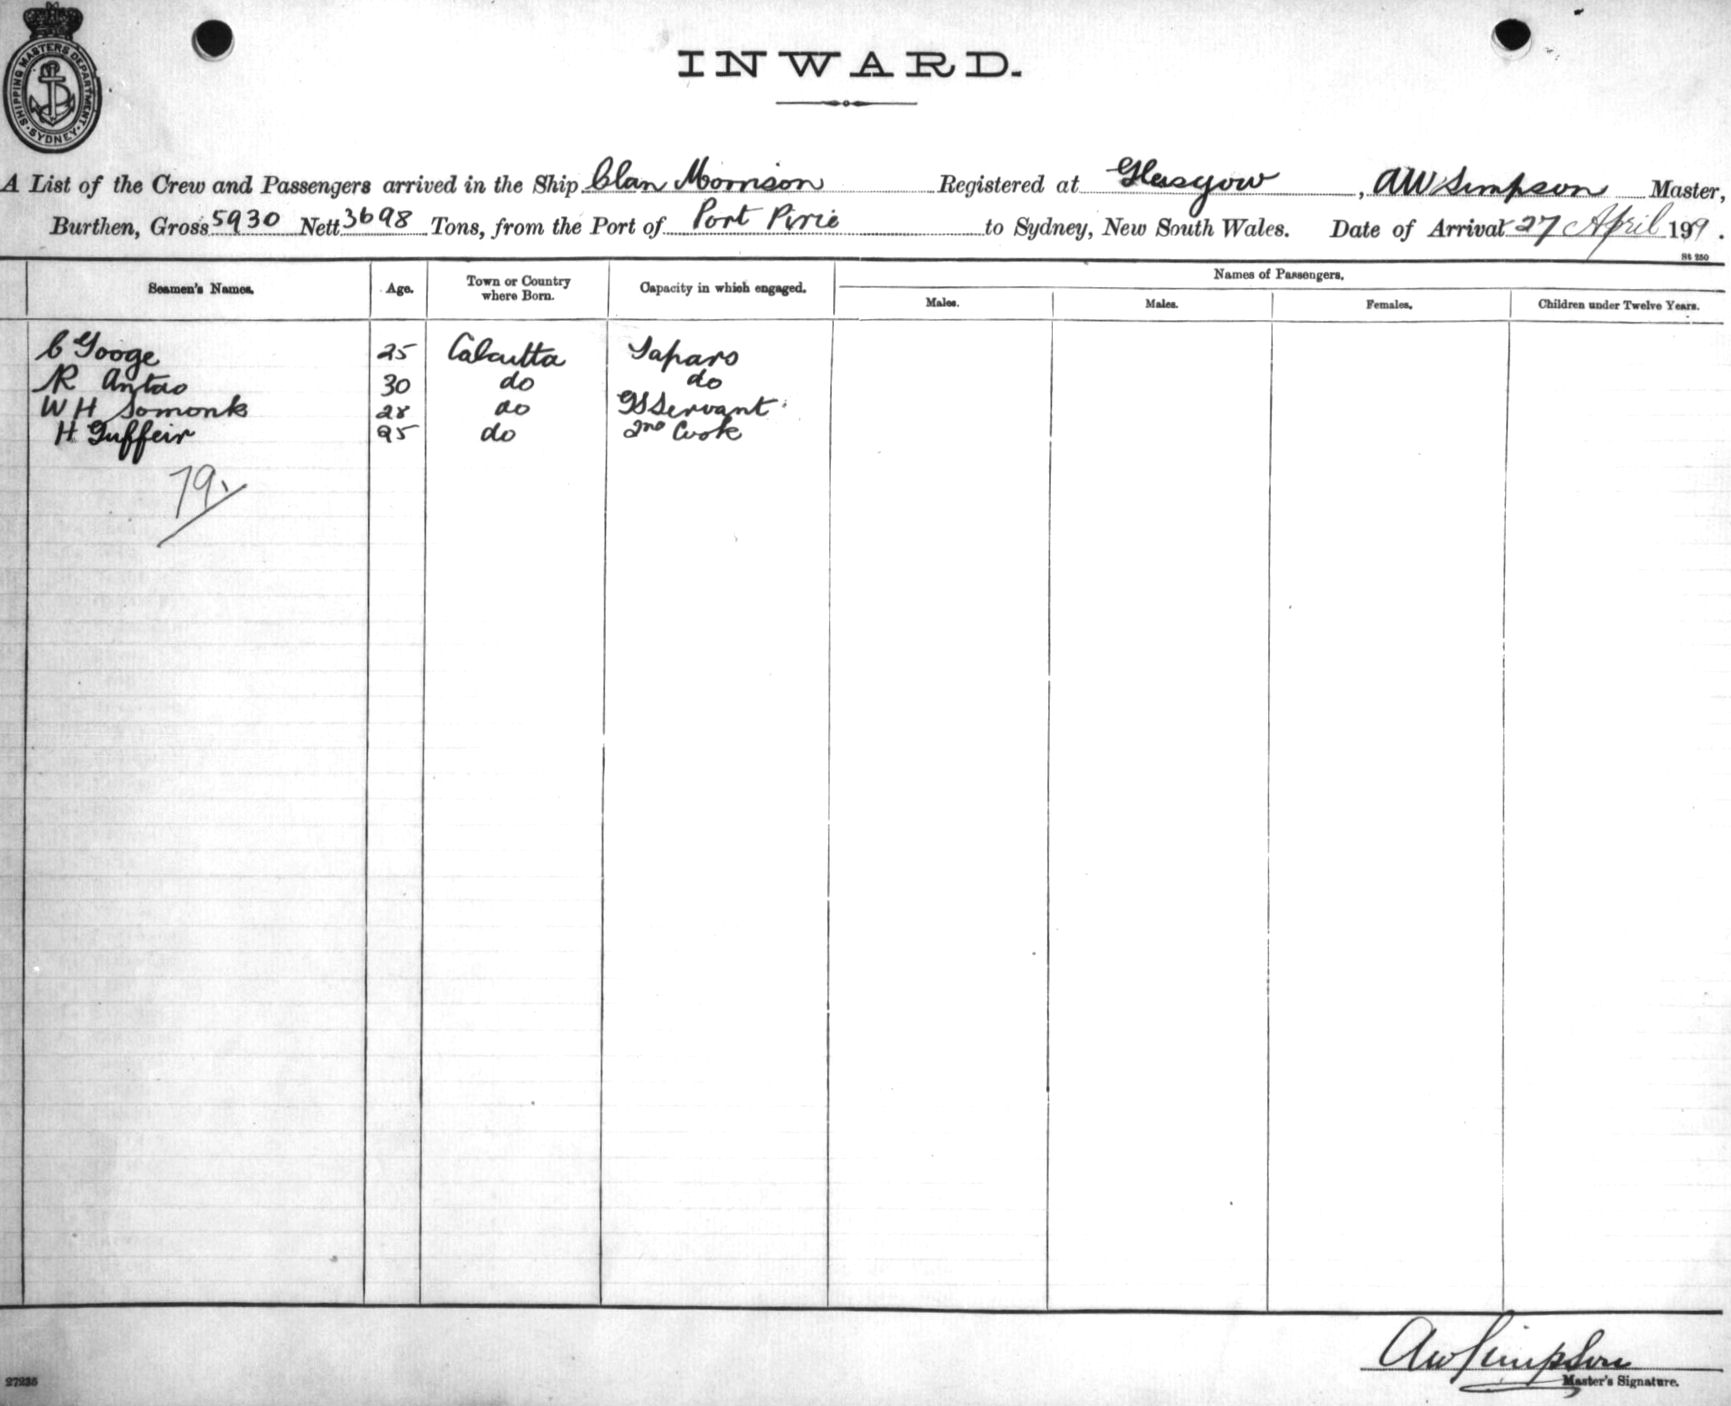 SHIPPING MASTERS DEPARTMENT · SYDNEY ·
INWARD.
A List of the Crew and Passengers arrived in the Ship Clan Morrison Registered at Glasgow, AW Simpson Master,
Burthen, Gross 5930 Nett 3698 Tons, from the Port of Port Pirie to Sydney, New South Wales. Date of Arrival 27 April 199.
St 250
Names of Passengers.
Seamen's Names. Age. Town or Country where Born. Capacity in which engaged. Males. Males. Females. Children under Twelve Years.
C Googe 25 Calcutta
R Antao 30 do do
W H Somonk 28 do Servant
H Guffeir 25 do 2nd Cook
79
AW Simpson
Master's Signature.
27235